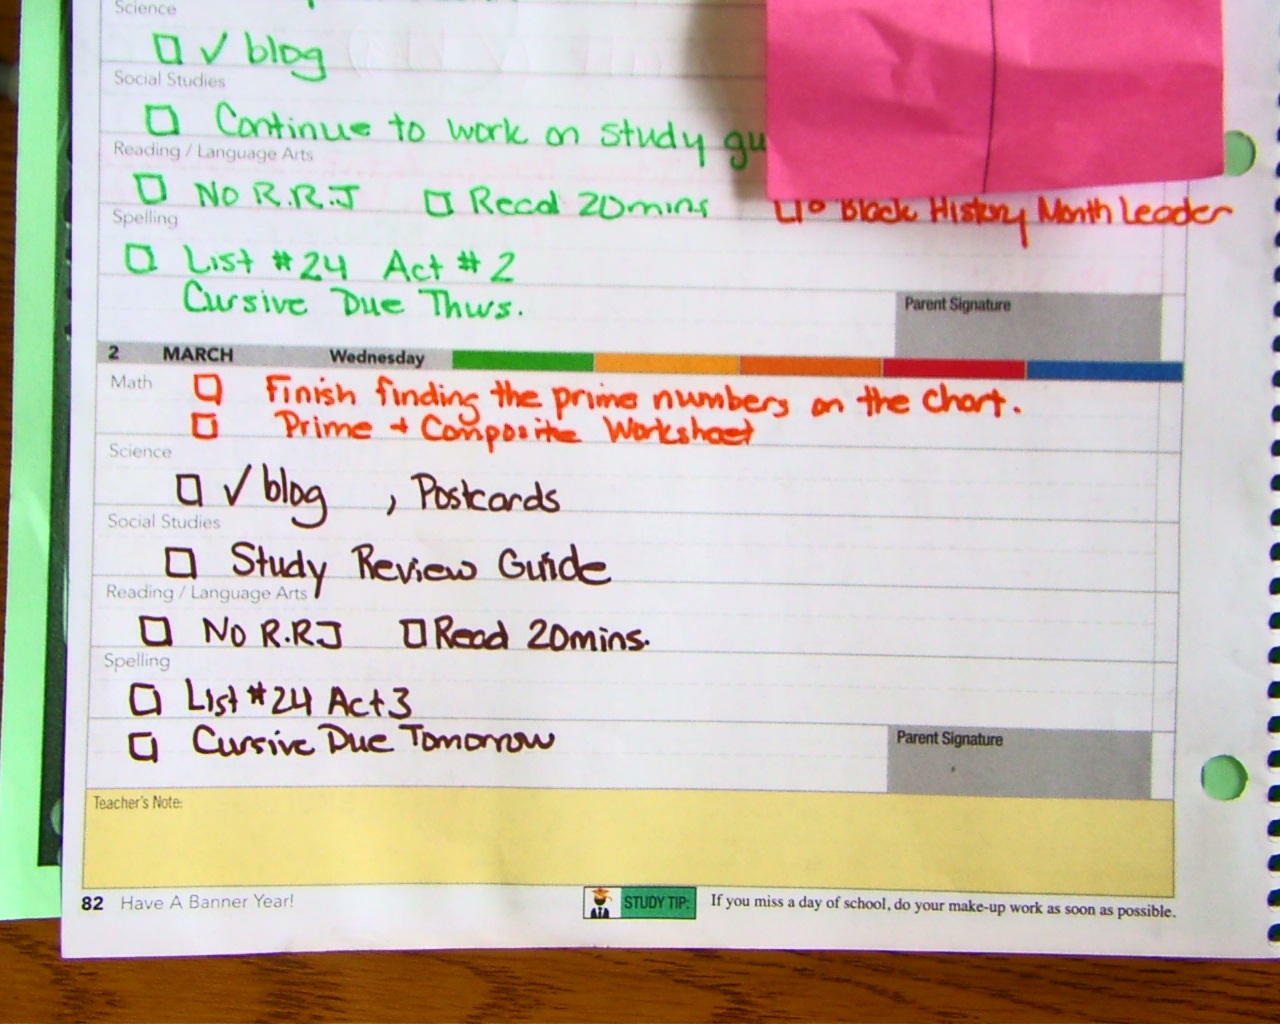 Science
☐ ✓ blog
Social Studies
☐ Continue to work on study
Reading / Language Arts
☐ No R.R.J ☐ Read 20mins Black History Month Leader
Spelling
☐ List #24 Act #2
Cursive Due Thurs.
Parent Signature
2 MARCH Wednesday
Math ☐ Finish finding the prime numbers on the chart.
☐ Prime + Composite Worksheet
Science
☐ ✓ blog , Postcards
Social Studies
☐ Study Review Guide
Reading / Language Arts
☐ No R.RJ ☐ Read 20mins.
Spelling
☐ List #24 Act 3
☐ Cursive Due Tomorrow
Parent Signature
Teacher's Note:
82 Have A Banner Year! STUDY TIP: If you miss a day of school, do your make-up work as soon as possible.